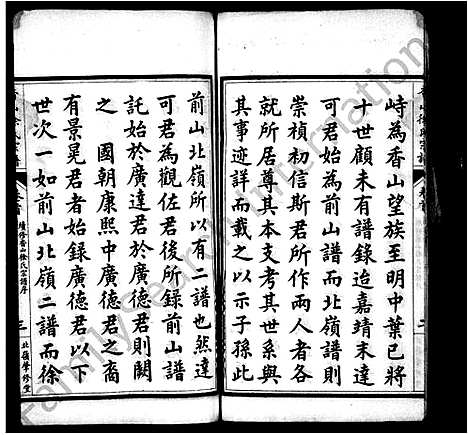 峙為香山望族至明中葉已將
十世顧未有譜錄迨嘉靖末達
可君始為前山譜而北嶺譜則
崇禎初信斯君所作兩人者各
就所居尊其本支考其世系與
其事迹詳而載之以示子孫此
前山北嶺所以有二譜也然達
可君為觀佐君後所錄前山譜
託始於廣達君於廣德君則闕
之 國朝康熙中廣德君之裔
有景晃君者始錄廣德君以下
世次一如前山北嶺二譜而徐
續修香山徐氏宗譜序
三
北嶺肇修堂
FamilySearch International